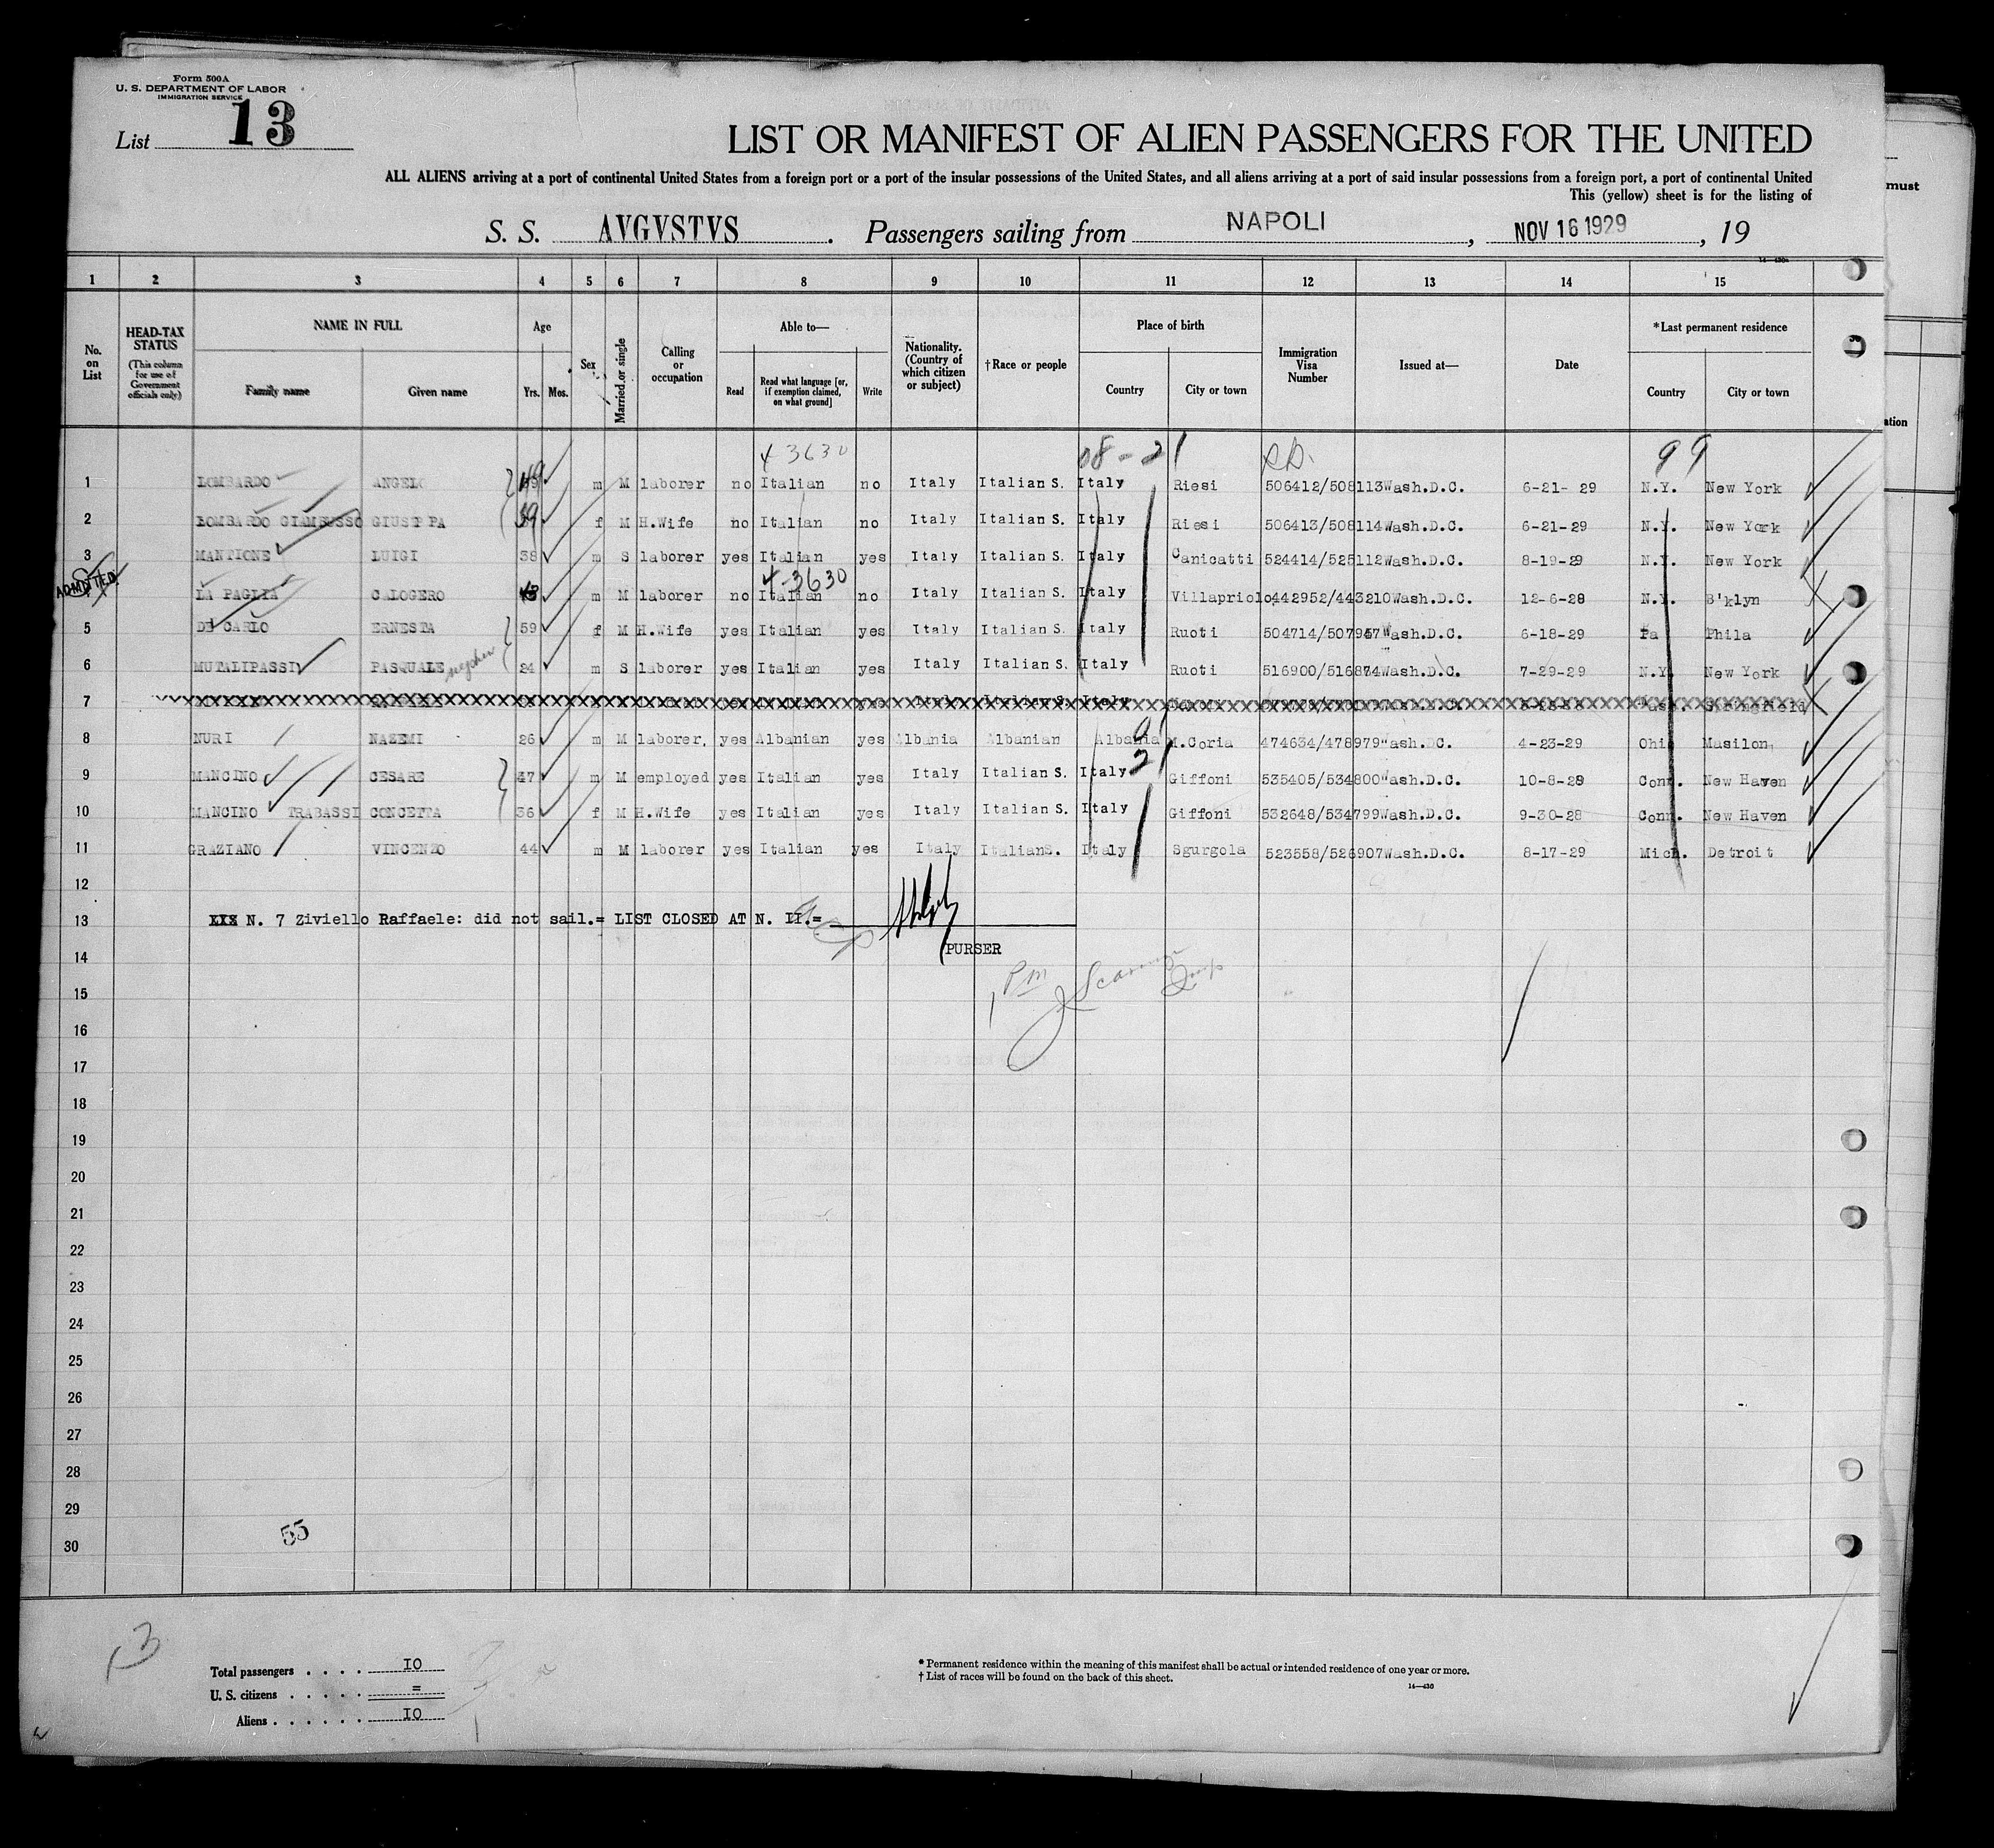 Form 500A
U. S. DEPARTMENT OF LABOR
IMMIGRATION SERVICE
List 13
LIST OR MANIFEST OF ALIEN PASSENGERS FOR THE UNITED
ALL ALIENS arriving at a port of continental United States from a foreign port or a port of the insular possessions of the United States, and all aliens arriving at a port of said insular possessions from a foreign port, a port of continental United
This (yellow) sheet is for the listing of
must
S. S. AVGVSTVS. Passengers sailing from NAPOLI, NOV 16 1929, 19
1 2 3 4 5 6 7 8 9 10 11 12 13 14 15
No. on List
HEAD-TAX STATUS (This column for use of Government officials only)
NAME IN FULL Family name Given name
Age Yrs. Mos.
Sex
Married or single
Calling or occupation
Able to— Read Read what language [or, if exemption claimed, on what ground] Write
Nationality. (Country of which citizen or subject)
†Race or people
Place of birth Country City or town
Immigration Visa Number
Issued at—
Date
*Last permanent residence Country City or town
ation
4 3630 08-21 99
1 LOMBARDO ANGELO 49 m M laborer no Italian no Italy Italian S. Italy Riesi 506412/508113 Wash.D.C. 6-21-29 N.Y. New York
2 LOMBARDO GIAMBUSSO GIUSEPPA 39 f M H.Wife no Italian no Italy Italian S. Italy Riesi 506413/508114 Wash.D.C. 6-21-29 N.Y. New York
3 MANTIONE LUIGI 38 m S laborer yes Italian yes Italy Italian S. Italy Canicatti 524414/525112 Wash.D.C. 8-19-29 N.Y. New York
4-3630
ADMITTED LA PAGLIA CALOGERO m M laborer no Italian no Italy Italian S. Italy Villapriolo 442952/443210 Wash.D.C. 12-6-28 N.Y. B'klyn
5 DE CARLO ERNESTA 59 f M H.Wife yes Italian yes Italy Italian S. Italy Ruoti Wash.D.C. 6-18-29 Pa Phila
6 MUTALIPASSI PASQUALE nephew 24 m S laborer yes Italian yes Italy Italian S. Italy Ruoti 516900/516874 Wash.D.C. 7-29-29 N.Y. New York
7 Italy Italian S. Italy
8 NURI NAZEMI 26 m M laborer, yes Albanian yes Albania Albanian Albania M.Coria 474634/478979 Wash.DC. 4-23-29 Ohi Masilon
9 MANCINO CESARE 47 m M employed yes Italian yes Italy Italian S. Italy 21 Giffoni 535405/534800 Wash.D.C. 10-8-29 Conn. New Haven
10 MANCINO TRABASSI CONCETTA 36 f M H.Wife yes Italian yes Italy Italian S. Italy Giffoni 532648/534799 Wash.D.C. 9-30-28 Conn. New Haven
11 GRAZIANO VINCENZO 44 m M laborer yes Italian yes Italy ItalianS. Italy Sgurgola 523558/526907 Wash.D.C. 8-17-29 Mich. Detroit
12
13 N. 7 Ziviello Raffaele: did not sail.= LIST CLOSED AT N. II.=
PURSER
14
15
16
17
18
19
20
21
22
23
24
25
26
27
28
29
30
55
13
Total passengers . . . . . 10
U. S. citizens . . . . . =
Aliens . . . . . . 10
* Permanent residence within the meaning of this manifest shall be actual or intended residence of one year or more.
† List of races will be found on the back of this sheet.
14—430